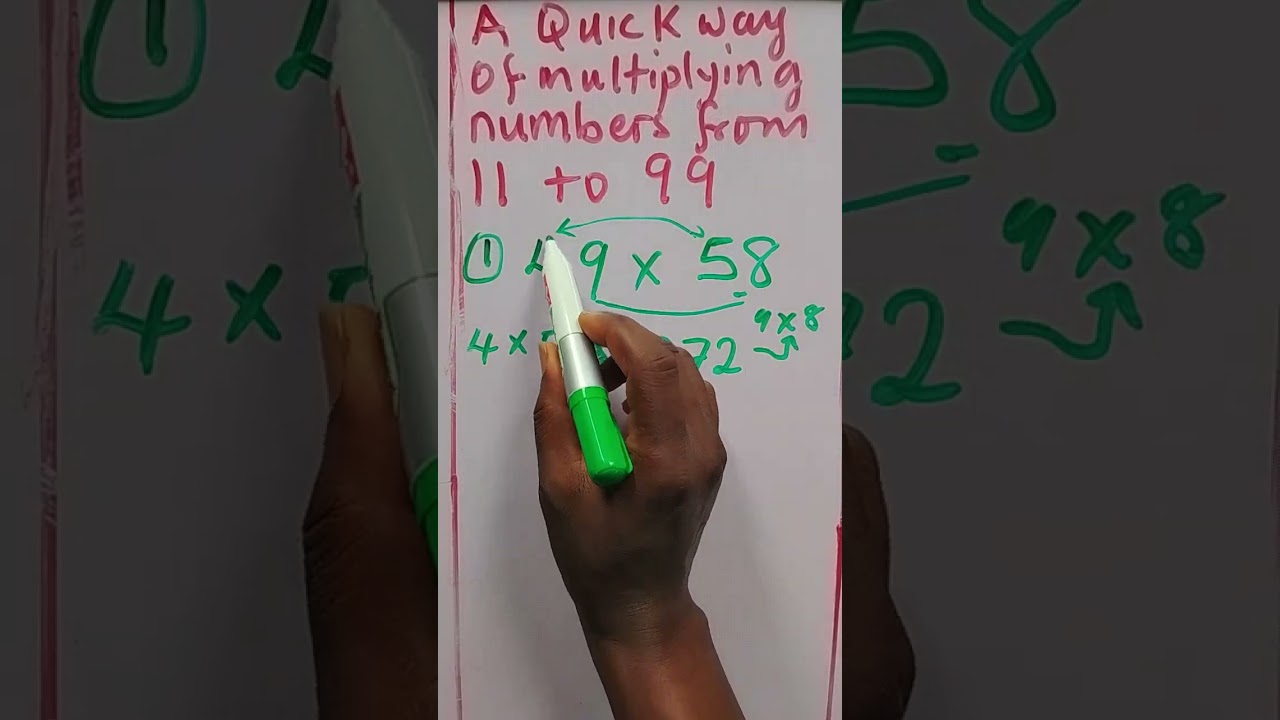 A Quick way
of multiplying
numbers from
11 to 99
① 49 x 58
9x8
4x 72